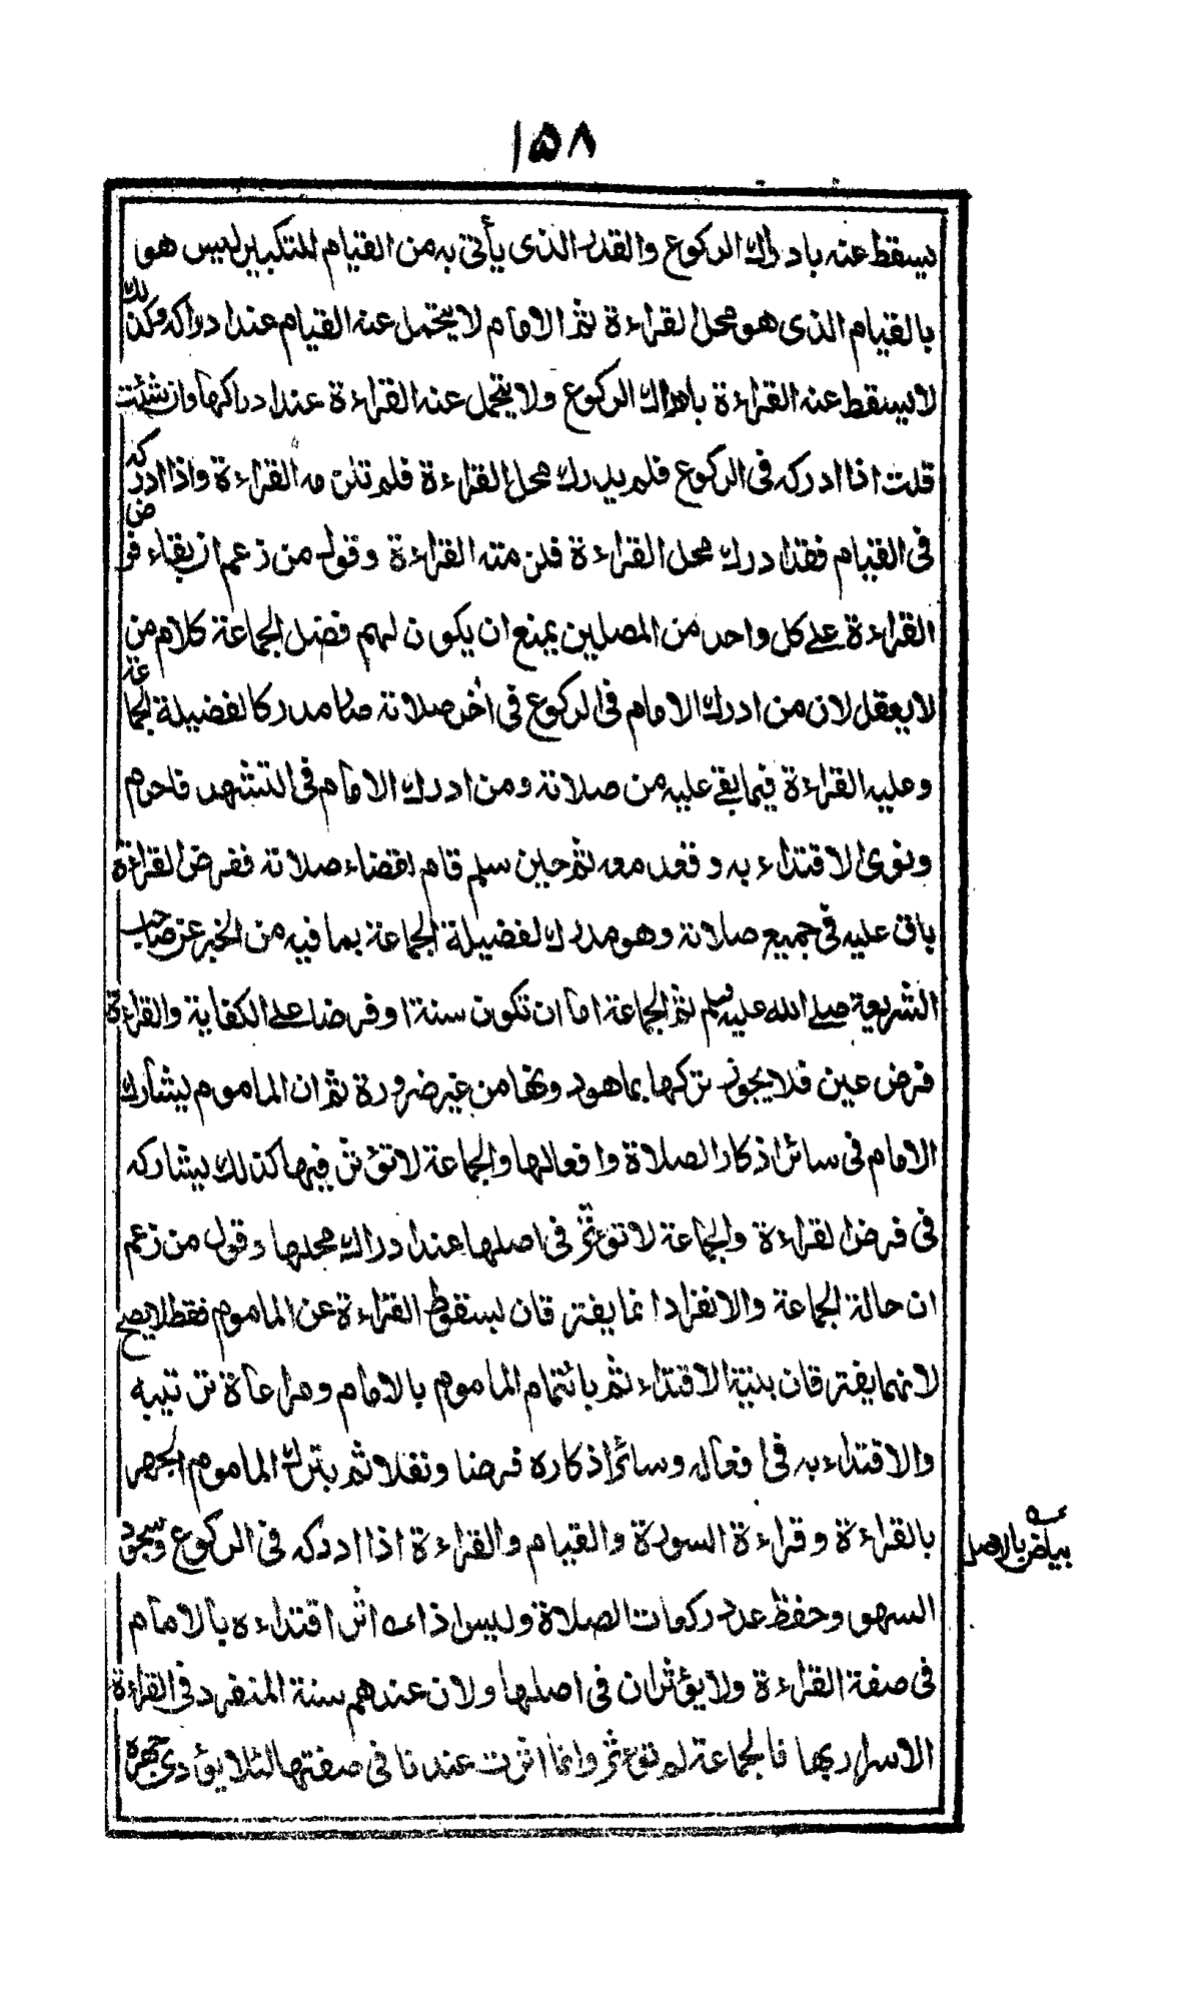 ۱۵۸
يسقط عنه بادراك الركوع والقدر الذى يأتى به من القيام للتكبير ليس هو
بالقيام الذى هو محل القراءة ثم الامام لا يتحمل عنه القيام عند ادراكه وكذلك
لا يسقط عنه القراءة بادراك الركوع ولا يتحمل عنه القراءة عند ادراكها وان شئت
قلت اذا ادركه فى الركوع فلم يدرك محل القراءة فلم تلزمه القراءة واذا ادركه
فى القيام فقد ادرك محل القراءة فلزمته القراءة وقول من زعم ان بقاء فرض
القراءة على كل واحد من المصلين يمنع ان يكون لهم فضل الجماعة كلام من
لا يعقل لان من ادرك الامام فى الركوع فى أخر صلاته صار مدركا لفضيلة الجماعة
وعليه القراءة فيما بقى عليه من صلاته ومن ادرك الامام فى التشهد فاحرم
ونوى الاقتداء به وقعد معه ثم حين سلم قام لقضاء صلاته ففرض القراءة
باق عليه فى جميع صلاته وهو مدرك لفضيلة الجماعة بما فيه من الخبر عن صاحب
الشريعة صلى الله عليه وسلم ثم الجماعة اما ان تكون سنة او فرضا على الكفاية والقراءة
فرض عين فلا يجوز تركها بما هو دونها من غير ضرورة ثم ان الماموم يشارك
الامام فى سائر اذكار الصلاة وافعالها والجماعة لا تؤثر فيها كذلك يشاركه
فى فرض القراءة والجماعة لا تؤثر فى اصلها عند ادراك محلها وقول من زعم
ان حالة الجماعة والانفراد انما يفترقان بسقوط القراءة عن الماموم فقط لا يصح
لانهما يفترقان بنية الاقتداء ثم بائتمام الماموم بالامام ومراعاة ترتيبه
والاقتداء به فى افعاله وسائر اذكاره فرضا ونفلا ثم بترك الماموم الجهر
بالقراءة وقراءة السورة والقيام والقراءة اذا ادركه فى الركوع وسجود
السهو وحفظ عدد ركعات الصلاة وليس اذا عه اثر اقتداءه بالامام
فى صفة القراءة ولا يؤثران فى اصلها ولان عندهم سنة المنفرد فى القراءة
الاسرار بها فالجماعة لم تؤثر وانما اثرت عندنا فى صفتها لئلا يؤدى جهره
عه
بياض بالاصل